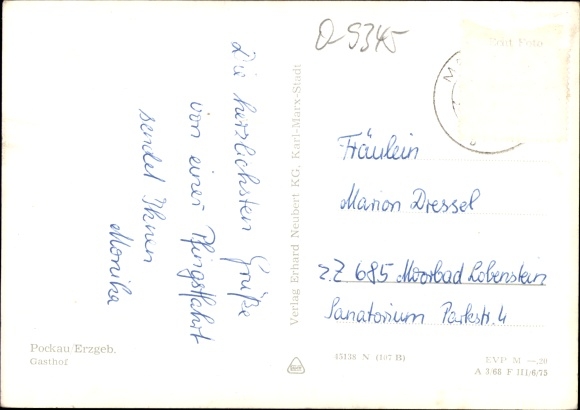 D-9345
Echt Foto
Die herzlichsten Grüße
von einer Pfingstfahrt
sendet Ihnen
Monika
Verlag Erhard Neubert KG, Karl-Marx-Stadt
Fräulein
Marion Dressel
z.Z 685 Moorbad Lobenstein
Sanatorium Parkstr. 4
Pockau/Erzgeb.
Gasthof
45138 N (107 B)
EVP M —,20
A 3/68 F III/6/75